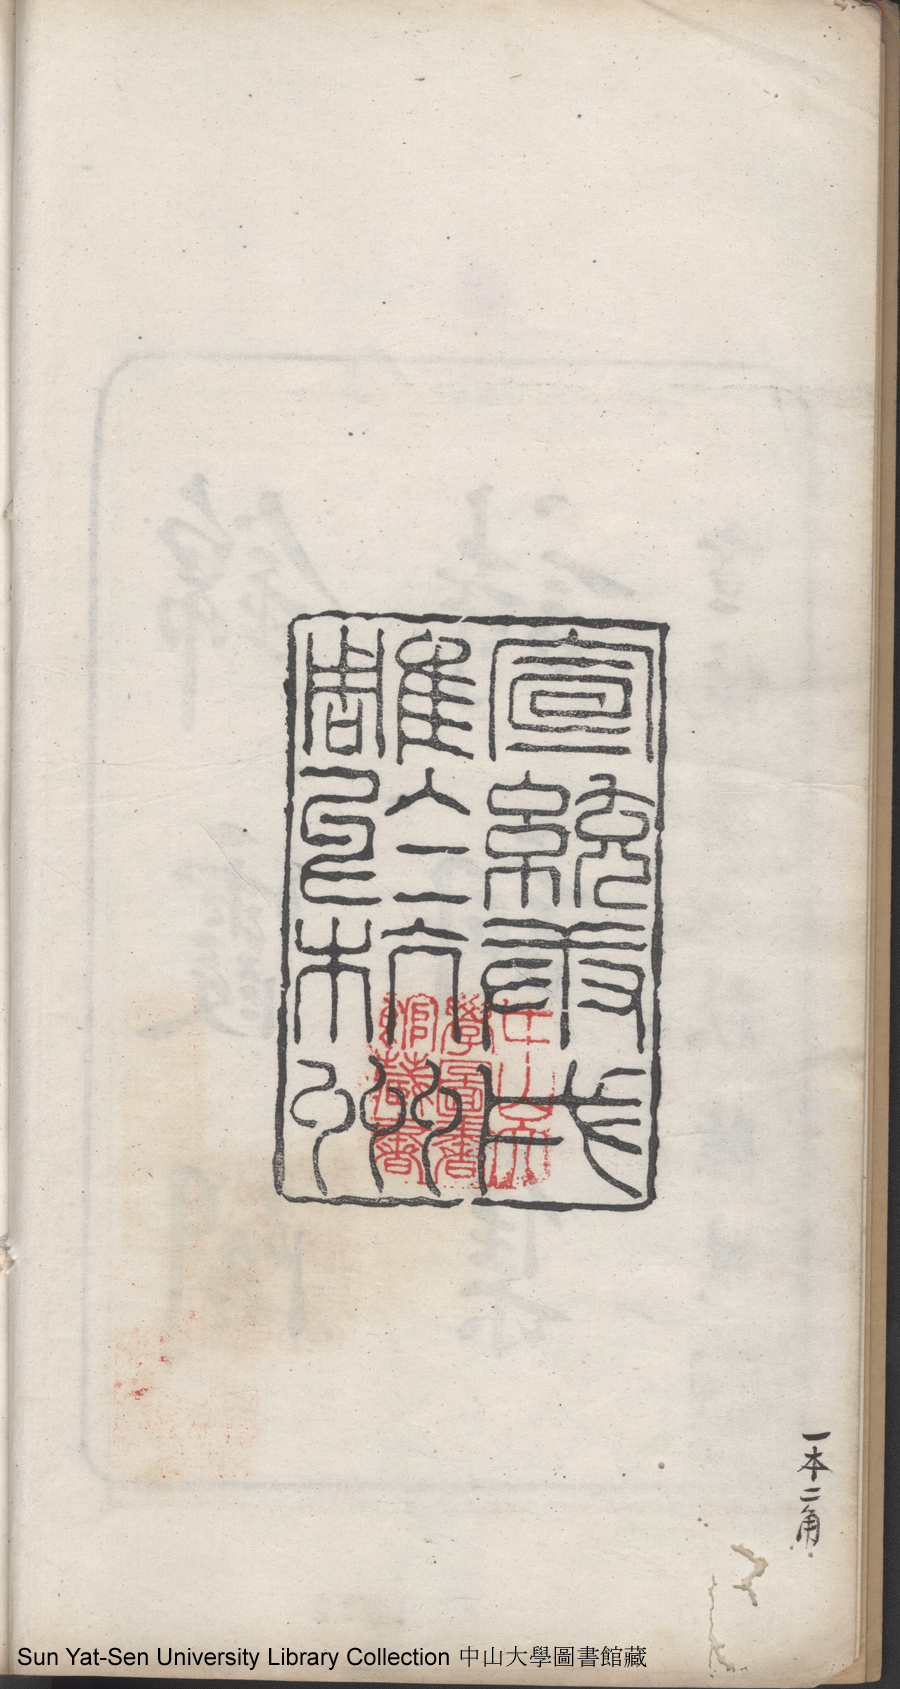 宣統庚戌
雕於杭州
中山大
學圖書
館藏書
一本二角
Sun Yat-Sen University Library Collection 中山大學圖書館藏